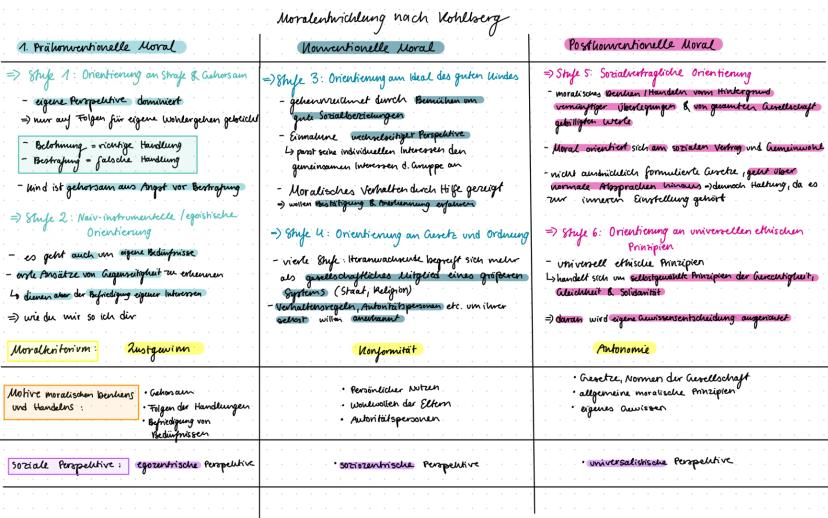 Moralentwicklung nach Kohlberg
1. Präkonventionelle Moral
⇒ Stufe 1: Orientierung an Strafe & Gehorsam
- eigene Perspektive dominiert
⇒ nur auf Folgen für eigene Wohlergehen
- Belohnung = richtige Handlung
- Bestrafung = falsche Handlung
- Kind ist gehorsam aus Angst vor Bestrafung
⇒ Stufe 2: Naiv-instrumentelle / egoistische
Orientierung
- es geht auch um eigene Bedürfnisse
- erste Ansätze von Gegenseitigkeit zu erkennen
↳ dienen aber der Befriedigung eigener Interessen
⇒ wie du mir so ich dir
Moralkriterium: Lustgewinn
Motive moralischen Denkens
und Handelns:
• Gehorsam
• Folgen der Handlungen
• Befriedigung von
Bedürfnissen
Soziale Perspektive: egozentrische Perspektive
Konventionelle Moral
⇒ Stufe 3: Orientierung am Ideal des guten Kindes
- gekennzeichnet durch Bemühen um
gute Sozialbeziehungen
- Einnahme wechselseitiger Perspektive
↳ passt seine individuellen Interessen den
gemeinsamen Interessen d. Gruppe an
- Moralisches Verhalten durch Hilfe gezeigt
⇒ wollen Bestätigung & Anerkennung erfahren
⇒ Stufe 4: Orientierung an Gesetz und Ordnung
- vierte Stufe: Heranwachsende begreift sich mehr
als gesellschaftliches Mitglied eines größeren
Systems (Staat, Religion)
- Verhaltensregeln, Autoritätspersonen etc. um ihrer
selbst willen anerkannt
Konformität
• Persönlicher Nutzen
• Wohlwollen der Eltern
• Autoritätspersonen
• soziozentrische Perspektive
Postkonventionelle Moral
⇒ Stufe 5: Sozialvertragliche Orientierung
- moralisches Denken/Handeln vorm Hintergrund
vernünftiger Überlegungen & von gesamten Gesellschaft
gebilligten Werte
- Moral orientiert sich am sozialen Vertrag und Gemeinwohl
- nicht ausdrücklich formulierte Gesetze, geht über
normale Absprachen hinaus ⇒ dennoch Haltung, da es
zur inneren Einstellung gehört
⇒ Stufe 6: Orientierung an universellen ethischen
Prinzipien
- universell ethische Prinzipien
↳ handelt sich um selbstgewählte Prinzipien der Gerechtigkeit,
Gleichheit & Solidarität
⇒ daran wird eigene Gewissensentscheidung ausgerichtet
Autonomie
• Gesetze, Normen der Gesellschaft
• allgemeine moralische Prinzipien
• eigenes Gewissen
• universalistische Perspektive